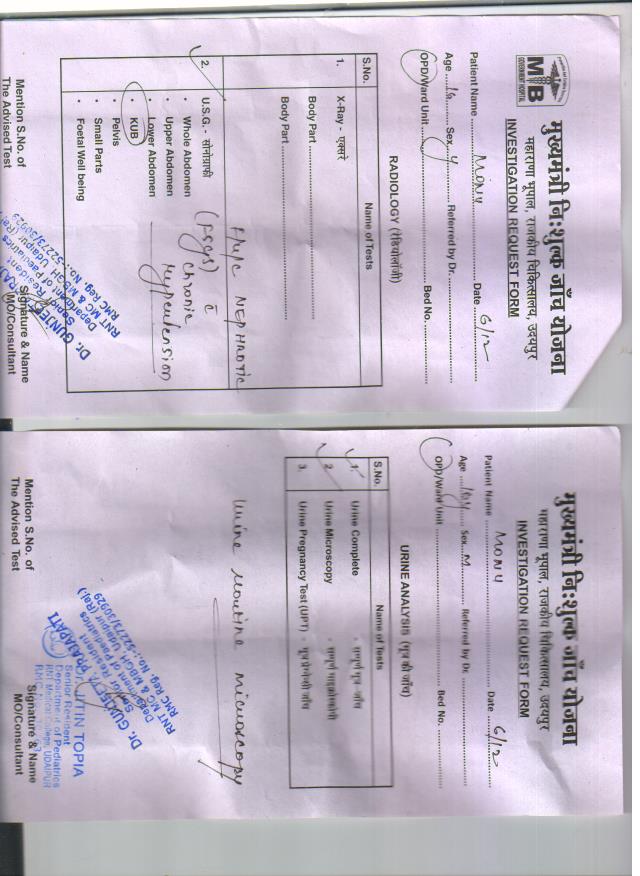 MB
GOVERNMENT HOSPITAL
मुख्यमंत्री नि:शुल्क जाँच योजना
महाराणा भूपाल, राजकीय चिकित्सालय, उदयपुर
INVESTIGATION REQUEST FORM
Patient Name MONU Date 6/12
Age Sex Referred by Dr.
OPD/Ward Unit Bed No.
RADIOLOGY (रेडियोलॉजी)
S.No. Name of Tests
1. X-Ray - एक्सरे
Body Part
Body Part
NEPHROTIC
2. U.S.G. - सोनोग्राफी
• Whole Abdomen
• Upper Abdomen
• Lower Abdomen
• KUB
• Pelvis
• Small Parts
• Foetal Well being
chronic
Hypertension
Senior Resident
Department of Paediatrics
RNT MC & MBGH, Udaipur (Raj.)
RMC Reg. No.:-52273/30929
Mention S.No. of
The Advised Test
Signature & Name
MO/Consultant
मुख्यमंत्री नि:शुल्क जाँच योजना
महाराणा भूपाल, राजकीय चिकित्सालय, उदयपुर
INVESTIGATION REQUEST FORM
Patient Name MONU Date 6/12
Age Sex M Referred by Dr.
OPD/Ward Unit Bed No.
URINE ANALYSIS (मूत्र की जाँच)
S.No. Name of Tests
1. Urine Complete - सम्पूर्ण मूत्र जाँच
2. Urine Microscopy
3. Urine Pregnancy Test (UPT)
Urine Routine microscopy
Dr. GUNJEETI PRAJAPATI
Senior Resident
Department of Paediatrics
RNT MC & MBGH, Udaipur (Raj.)
RMC Reg. No.:-52273/30929
TOPIA
Senior Resident
Department of Pediatrics
RNT Medical College, UDAIPUR
Mention S.No. of
The Advised Test
Signature & Name
MO/Consultant